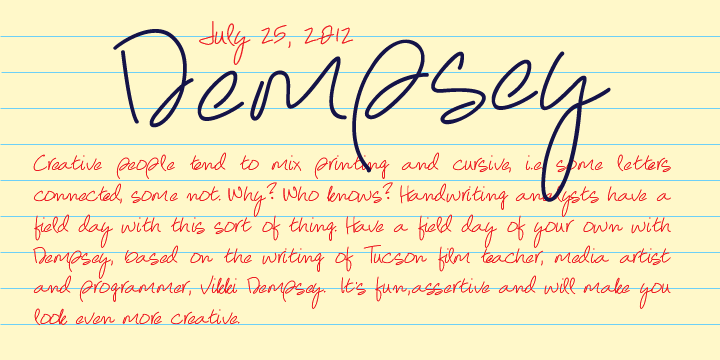 July 25, 2012
Dempsey
Creative people tend to mix printing and cursive, i.e. some letters
connected, some not. Why? Who knows? Handwriting analysts have a
field day with this sort of thing. Have a field day of your own with
Dempsey, based on the writing of Tucson film teacher, media artist
and programmer, Vikki Dempsey. It's fun,assertive and will make you
look even more creative.